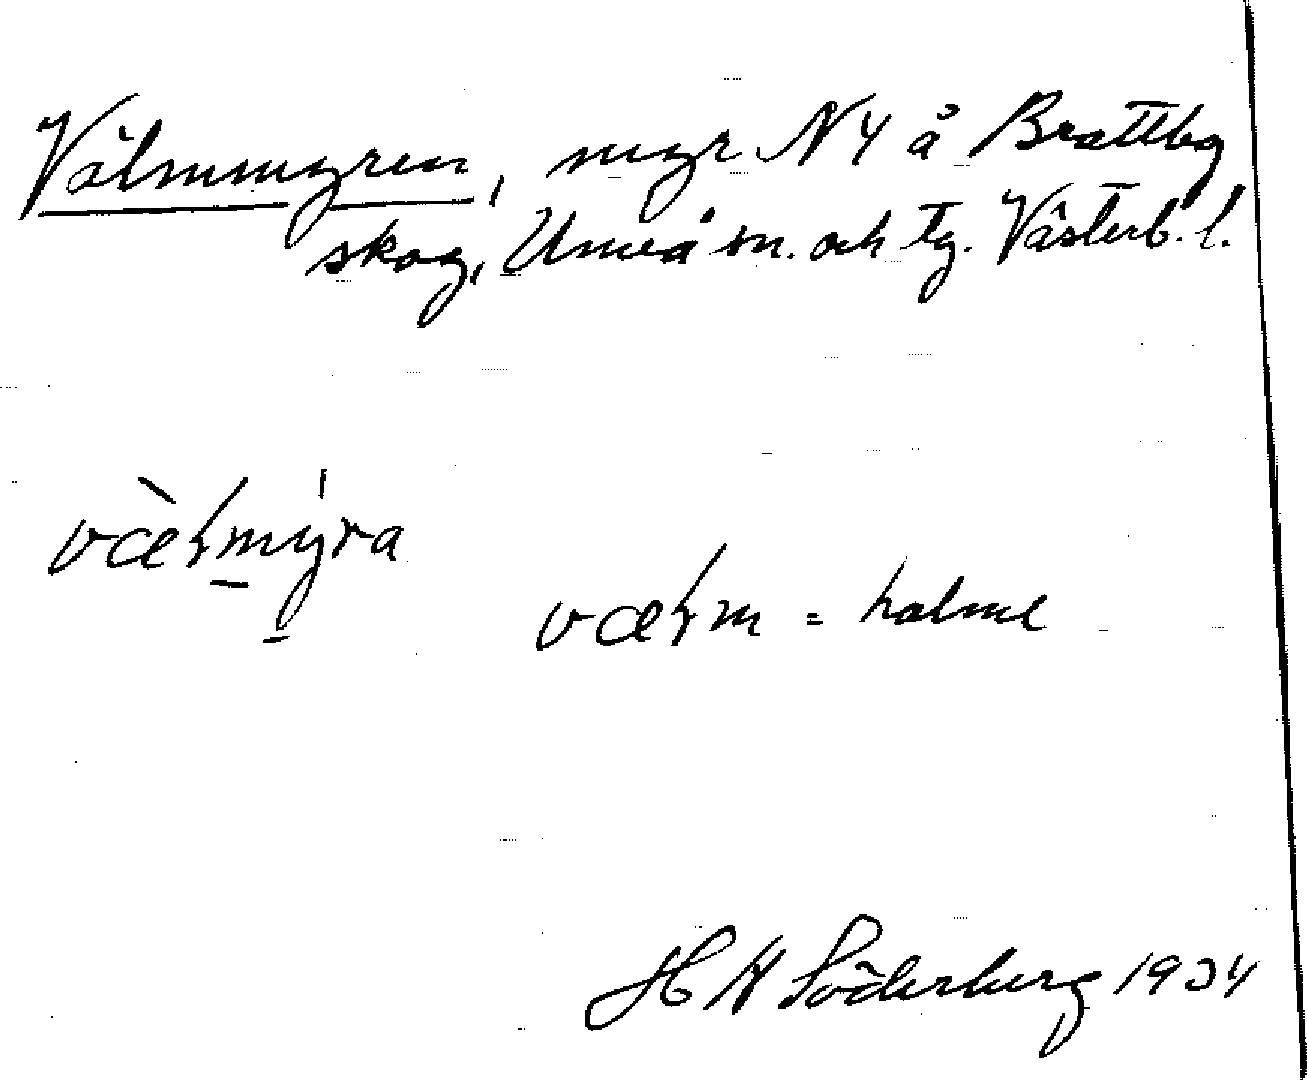 Välmmyren, myr NV å Brattby
skog, Umeå sn. och tg. Västerb. l.
væ̀ɫmýra
væɫm = holme
H W Söderberg 1934